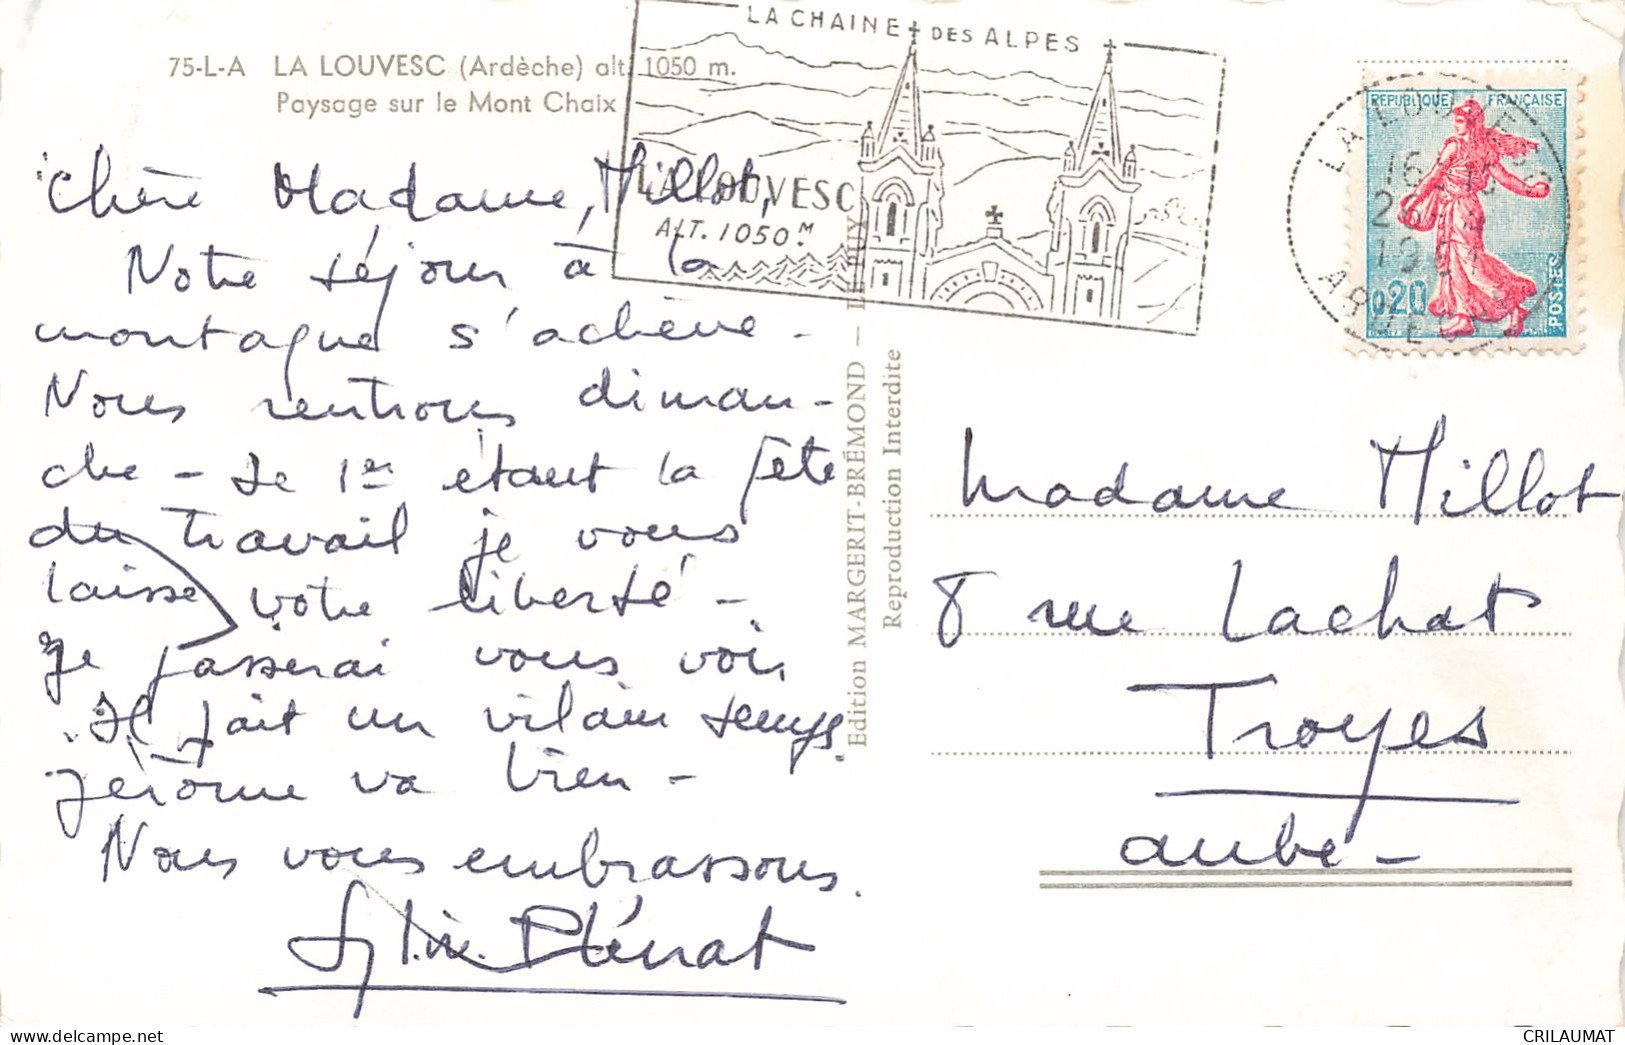 75-L-A LA LOUVESC (Ardèche) alt. 1050 m.
Paysage sur le Mont Chaix
LA CHAINE DES ALPES
LA LOUVESC
ALT. 1050 M
REPUBLIQUE FRANÇAISE
0,20
POSTES
LA LOUVESC
ARDECHE
Chère Madame Millot,
Notre séjour à la
montagne s'achève -
Nous rentrons diman-
che - Le 1er étant la fête
du travail je vous
laisse votre liberté -
Je passerai vous voir
Il fait un vilain temps.
Jérôme va bien -
Nous vous embrassons.
Edition MARGERIT-BRÉMOND —
Reproduction Interdite
Madame Millot
8 rue Lachat
Troyes
Aube -
CRILAUMAT